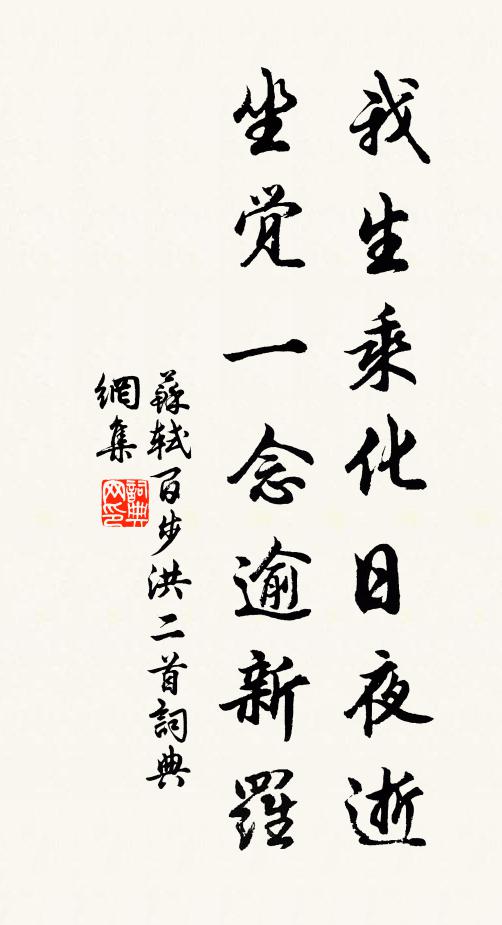 我生乘化日夜逝
坐觉一念逾新羅
蘇軾百步洪二首詞典
網集
詞典网印